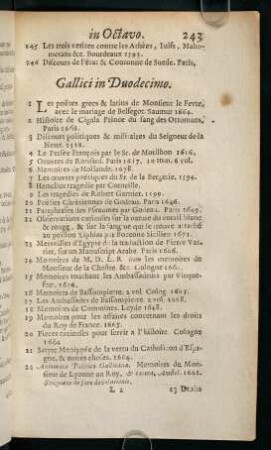 in Octavo. 243
245 Les trois veritez contre les Athées, Juifs, Maho-
metans &c. Bourdeaux 1595.
246 Discours de l'état & Couronne de Suede. Paris.
Gallici in Duodecimo.
1 Les poëtes grecs & latins de Monsieur le Fevre,
avec le mariage de Belfegor. Saumur 1664.
2 Histoire de Cigala Prince du sang des Ottomans,
Paris 1668.
3 Discours politiques & militaires du Seigneur de la
Noue.
4 Le Persée François par le Sr. de Morillhon 1616.
5 Oeuvres de Ronsard. Paris 1617. 10 tom. 6 vol.
6 Memoires de Hollande. 1678.
7 Les œuvres poëtiques du Sr. de la Bergerie. 1594.
8 Heraclius tragedie par Corneille.
9 Les tragedies de Robert Garnier. 1599.
20 Poësies Chrétiennes de Godeau. Paris 1646.
21 Paraphrases des Pseaumes par Godeau. Paris 1649.
12 Observations curieuses sur la nature du corail blanc
& rouge, & sur la sang qui se trouve attaché
au poisson par Boccone Sicilien 1671.
13 Merveilles d'Egypte de la traduction de Pierre Vat-
tier, sur un Manuscript Arabe. Paris 1666.
14 Memoires de M. D. L. R. item les memoires de
Monsieur de la Chastre &c. Cologne 1661.
15 Memoires touchant les Ambassadeurs par Vicque-
fort.
16 Memoires de Bassompierre. 2 vol. Cologne 1665.
17 Les Ambassades de Bassompierre 2 vol. 1668.
18 Memoires de Commines. Leyde 1648.
19 Memoires pour les affaires concernant les droits
du Roy de France. 1665.
20 Pieces curieuses pour servir a l'histoire. Cologne
1664
21 Satyre Menippée de la vertu du Catholicon d'Espa-
gne, & autres choses. 1664.
22 Memoires de Mon-
sieur de Lyonne au Roy, &
L 2 23